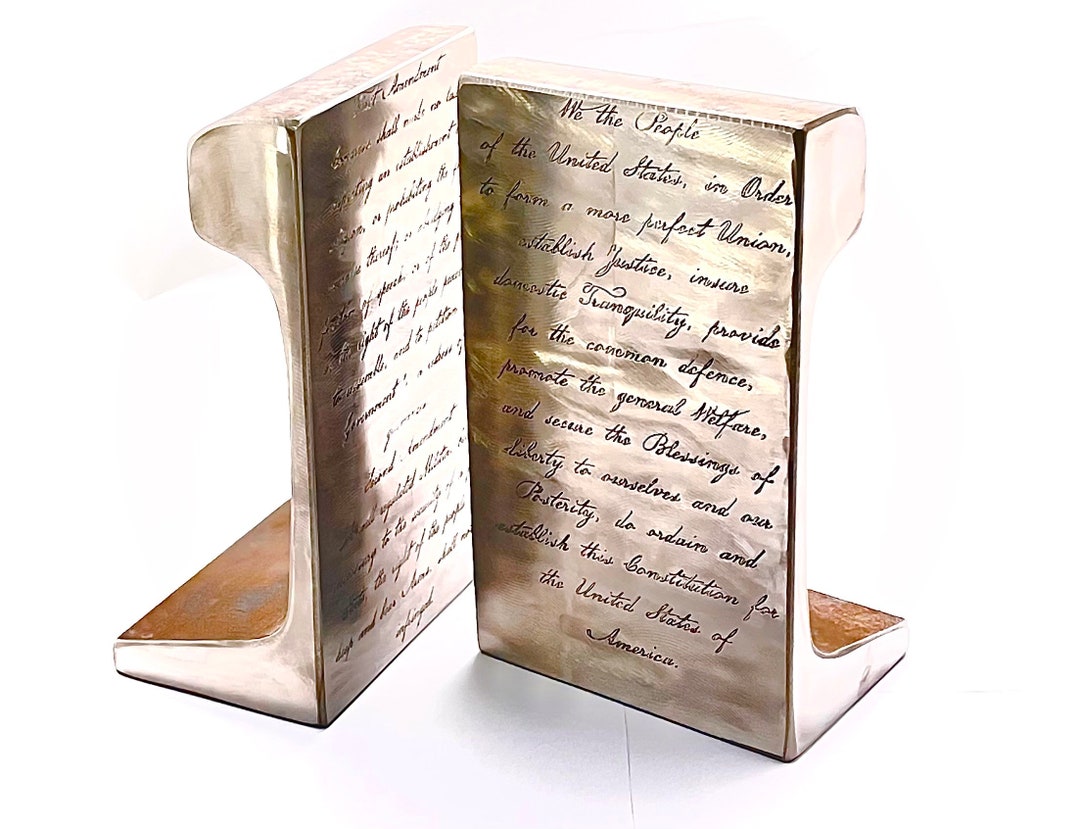 First Amendment
shall make no
an establishment
or prohibiting the
thereof; or abridging
of speech, or of the
the right of the people
to assemble, and to petition
government
a redress of
grievances
Second Amendment
regulated Militia
to the security of a
the right of the people
keep and bear Arms, shall not
infringed.
We the People
of the United States, in Order
to form a more perfect Union,
establish Justice, insure
domestic Tranquility, provide
for the common defence,
promote the general Welfare,
and secure the Blessings of
liberty to ourselves and our
Posterity, do ordain and
establish this Constitution for
the United States of
America.